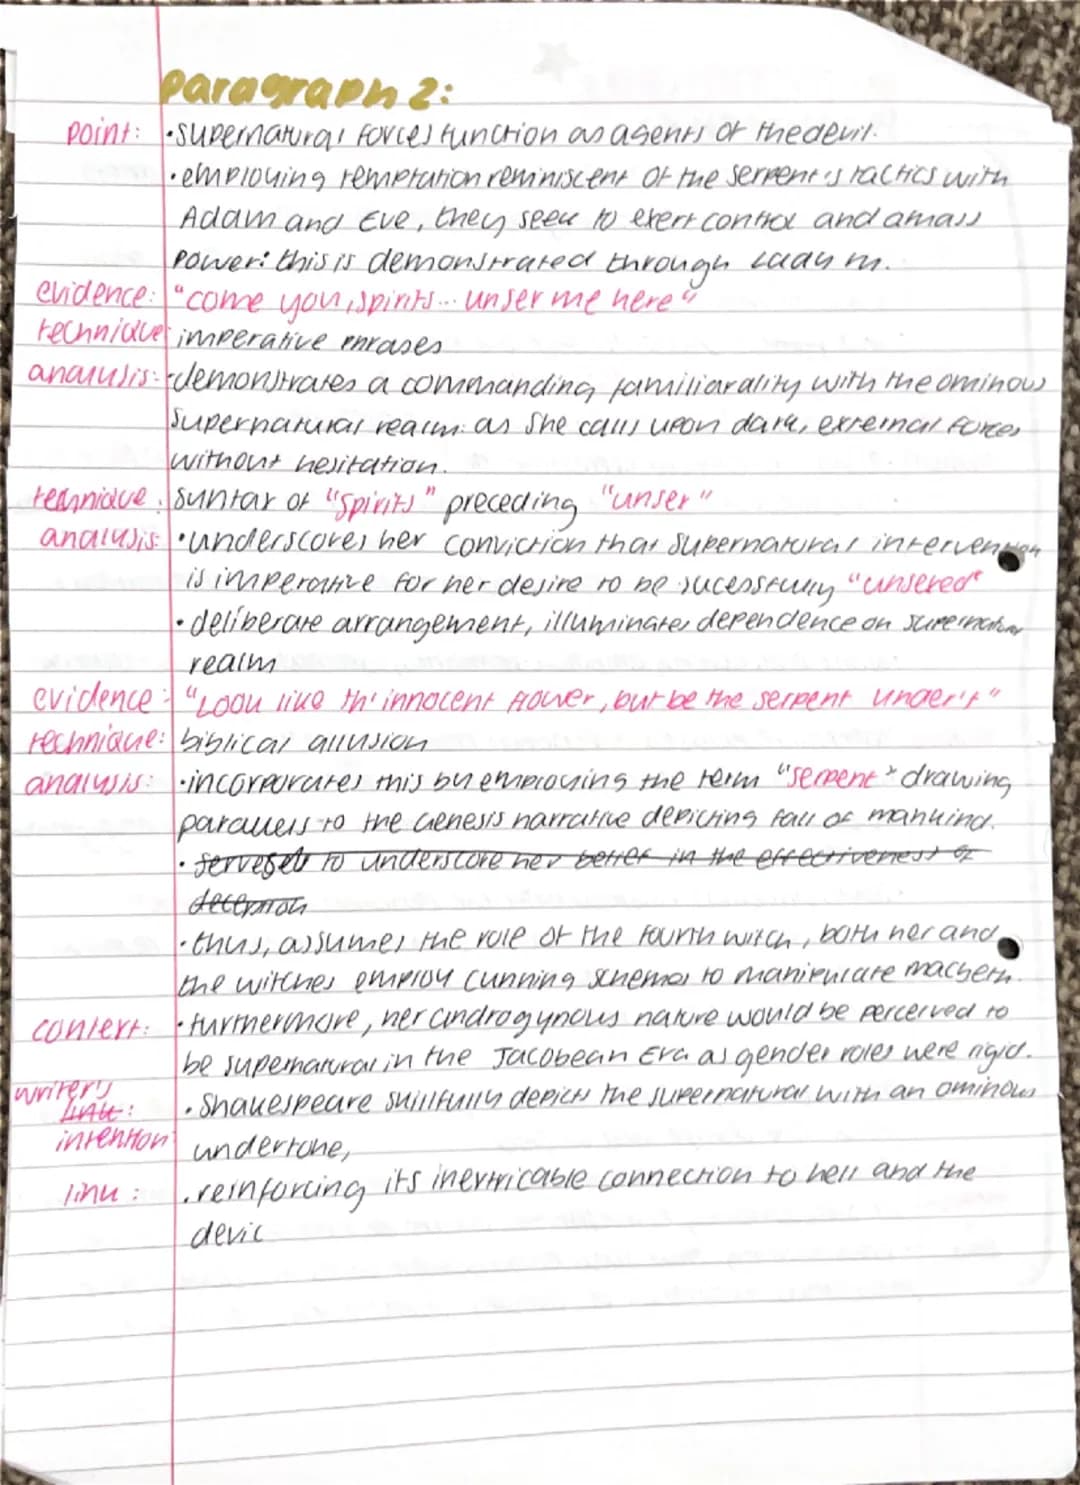 Paragraph 2:
point: • supernatural forces function as agents of the devil.
• employing temptation reminiscent of the serpent's tactics with
Adam and Eve, they seek to exert control and amass
power: this is demonstrated through Lady m.
evidence: "come you, spirits... unsex me here"
technique: imperative phrases
analysis: • demonstrates a commanding familiarality with the ominous
supernatural realm: as she calls upon dark, external forces
without hesitation.
technique: syntax of "spirits" preceding "unsex"
analysis: • underscores her conviction that supernatural intervention
is imperative for her desire to be sucessfully "unsexed"
• deliberate arrangement, illuminates dependence on supernatural
realm
evidence: "Look like th' innocent flower, but be the serpent under't"
technique: biblical allusion
analysis: • incorporates this by employing the term "serpent" drawing
parallels to the Genesis narrative depicting fall of mankind.
• serves to underscore her belief in the effectiveness of
deception
• thus, assumes the role of the fourth witch, both her and
the witches employ cunning schemes to manipulate macbeth.
context: • furthermore, her androgynous nature would be perceived to
be supernatural in the Jacobean Era as gender roles were rigid.
writer's
link: • Shakespeare skillfully depicts the supernatural with an ominous
intention undertone,
link: • reinforcing its inextricable connection to hell and the
devil